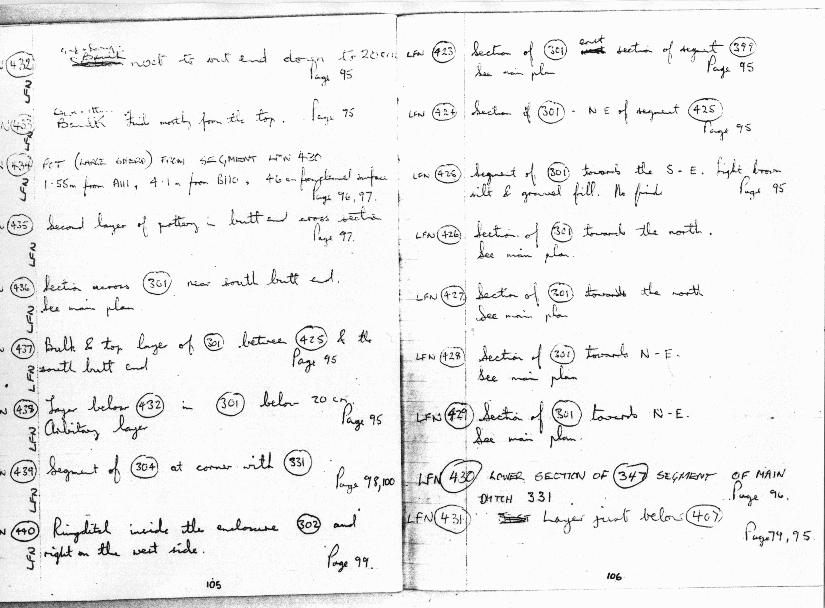 LFN (432) next to butt end down to 20cm
Page 95
LFN (433) Find mostly from the top. Page 95
LFN (434) POT (LARGE SHERD) FROM SEGMENT LFN 430
1.55m from A111, 4.1m from B110, 46cm from surface
Page 96, 97.
LFN (435) Second layer of pottery in butt end cross section
Page 97.
LFN (436) Section across (301) near south butt end.
See main plan.
LFN (437) Bulk & top layer of (301) between (425) & the
south butt end Page 95
LFN (438) Layer below (432) in (301) below 20 cm.
Arbitrary layer Page 95
LFN (439) Segment of (304) at corner with (331)
Page 98,100
LFN (440) Ringditch inside the enclosure (302) and
right on the west side. Page 99.
105
LFN (423) Section of (301) east section of segment (399)
See main plan Page 95
LFN (424) Section of (301) - N E of segment (425)
Page 95
LFN (425) Segment of (301) towards the S-E. Light brown
silt & gravel fill. No finds Page 95
LFN (426) Section of (301) towards the north.
See main plan.
LFN (427) Section of (301) towards the north
See main plan
LFN (428) Section of (301) towards N-E.
See main plan
LFN (429) Section of (301) towards N-E.
See main plan.
LFN (430) LOWER SECTION OF (347) SEGMENT OF MAIN
DITCH 331 Page 96.
LFN (431) Layer just below (407)
Page 79, 95.
106